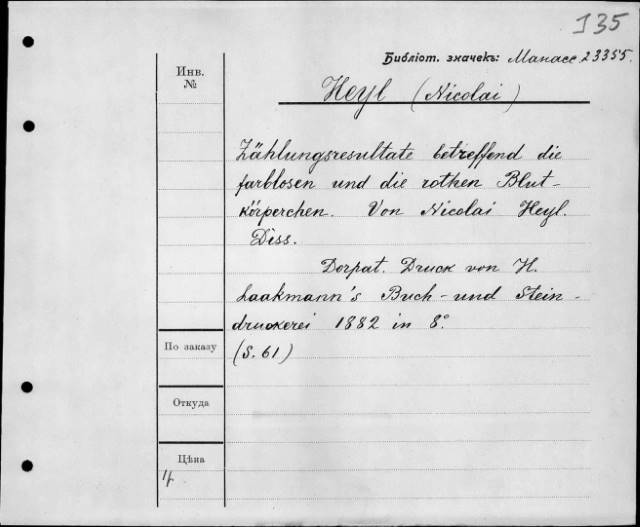 135
Библіот. значекъ: Манасс 23355.
Инв.
№
Heyl (Nicolai)
Zählungsresultate betreffend die
farblosen und die rothen Blut-
körperchen. Von Nicolai Heyl.
Diss.
Dorpat. Druck von H.
Laakmann's Buch- und Stein-
druckerei 1882 in 8°.
По заказу
(S. 61)
Откуда
Цѣна